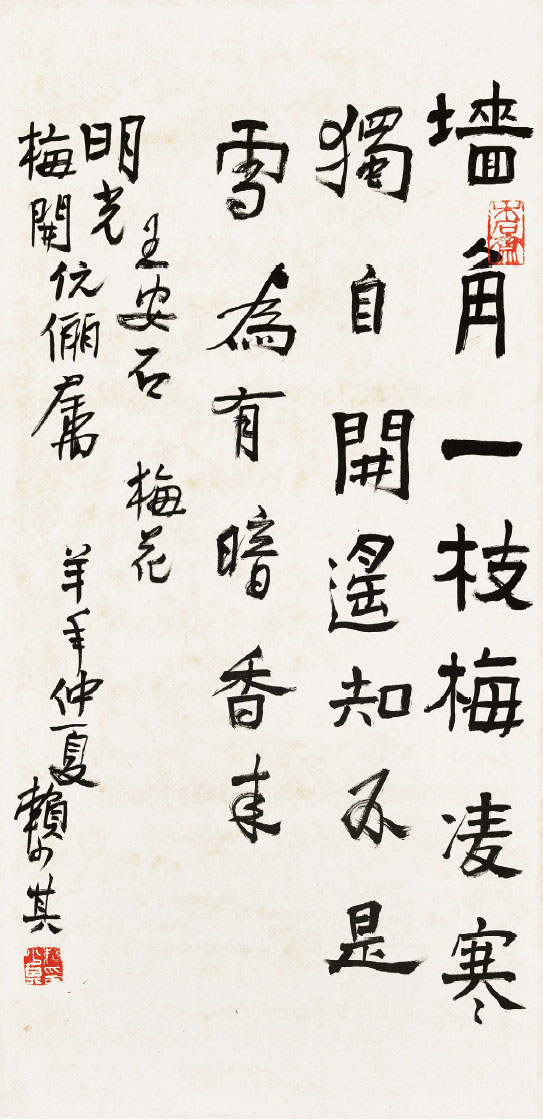 墙角一枝梅凌寒
獨自開遙知不是
雪為有暗香来
王安石 梅花
明光
梅開伉儷屬
羊年仲夏 賴少其